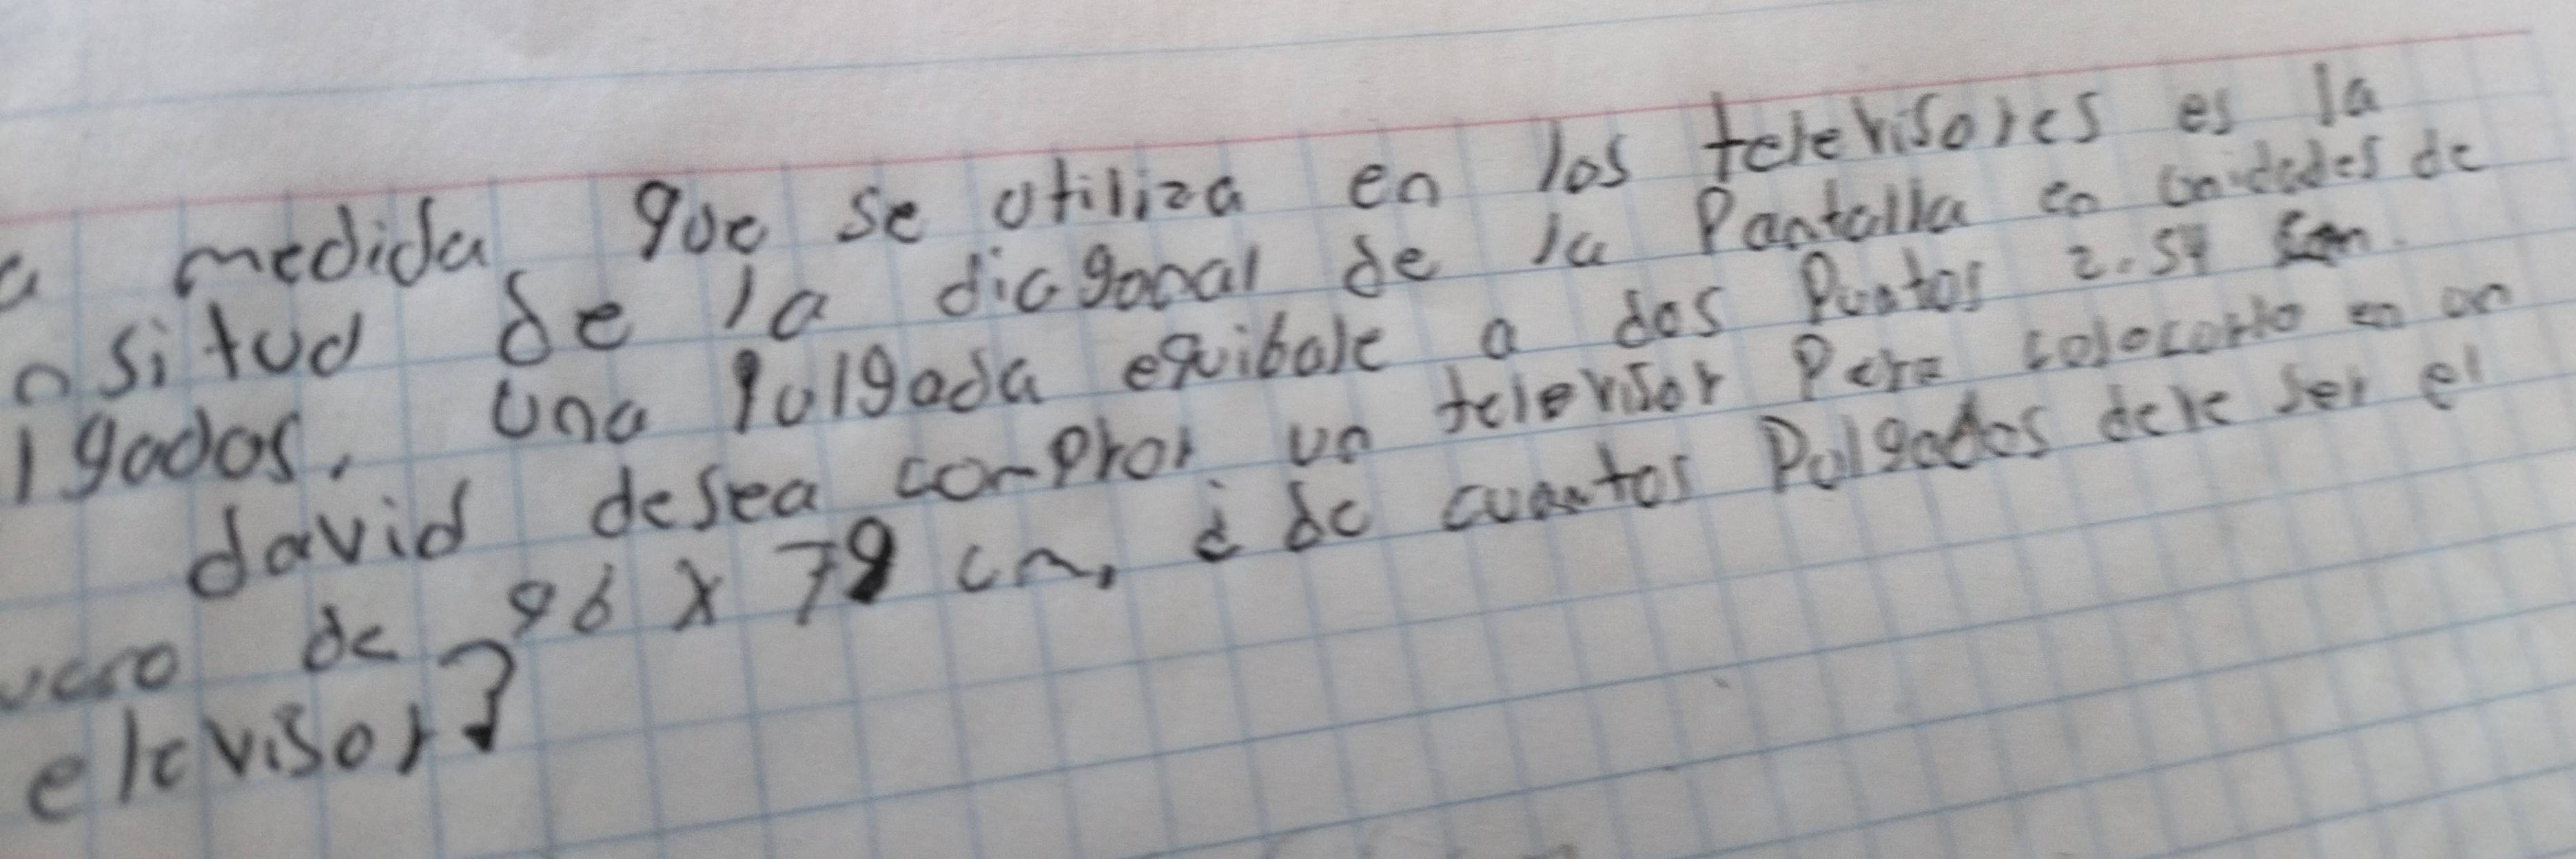 a medida que se utiliza en los televisores es la
nsitud de la diagonal de la Pantalla en unidades de
lgadas. una Pulgada equibale a dos Puntos 2.54 cm.
david desea comprar un televisor Para colocarlo en un
ueco de 96 x 79 cm, ¿ de cuantos Pulgadas debe ser el
elevisor?